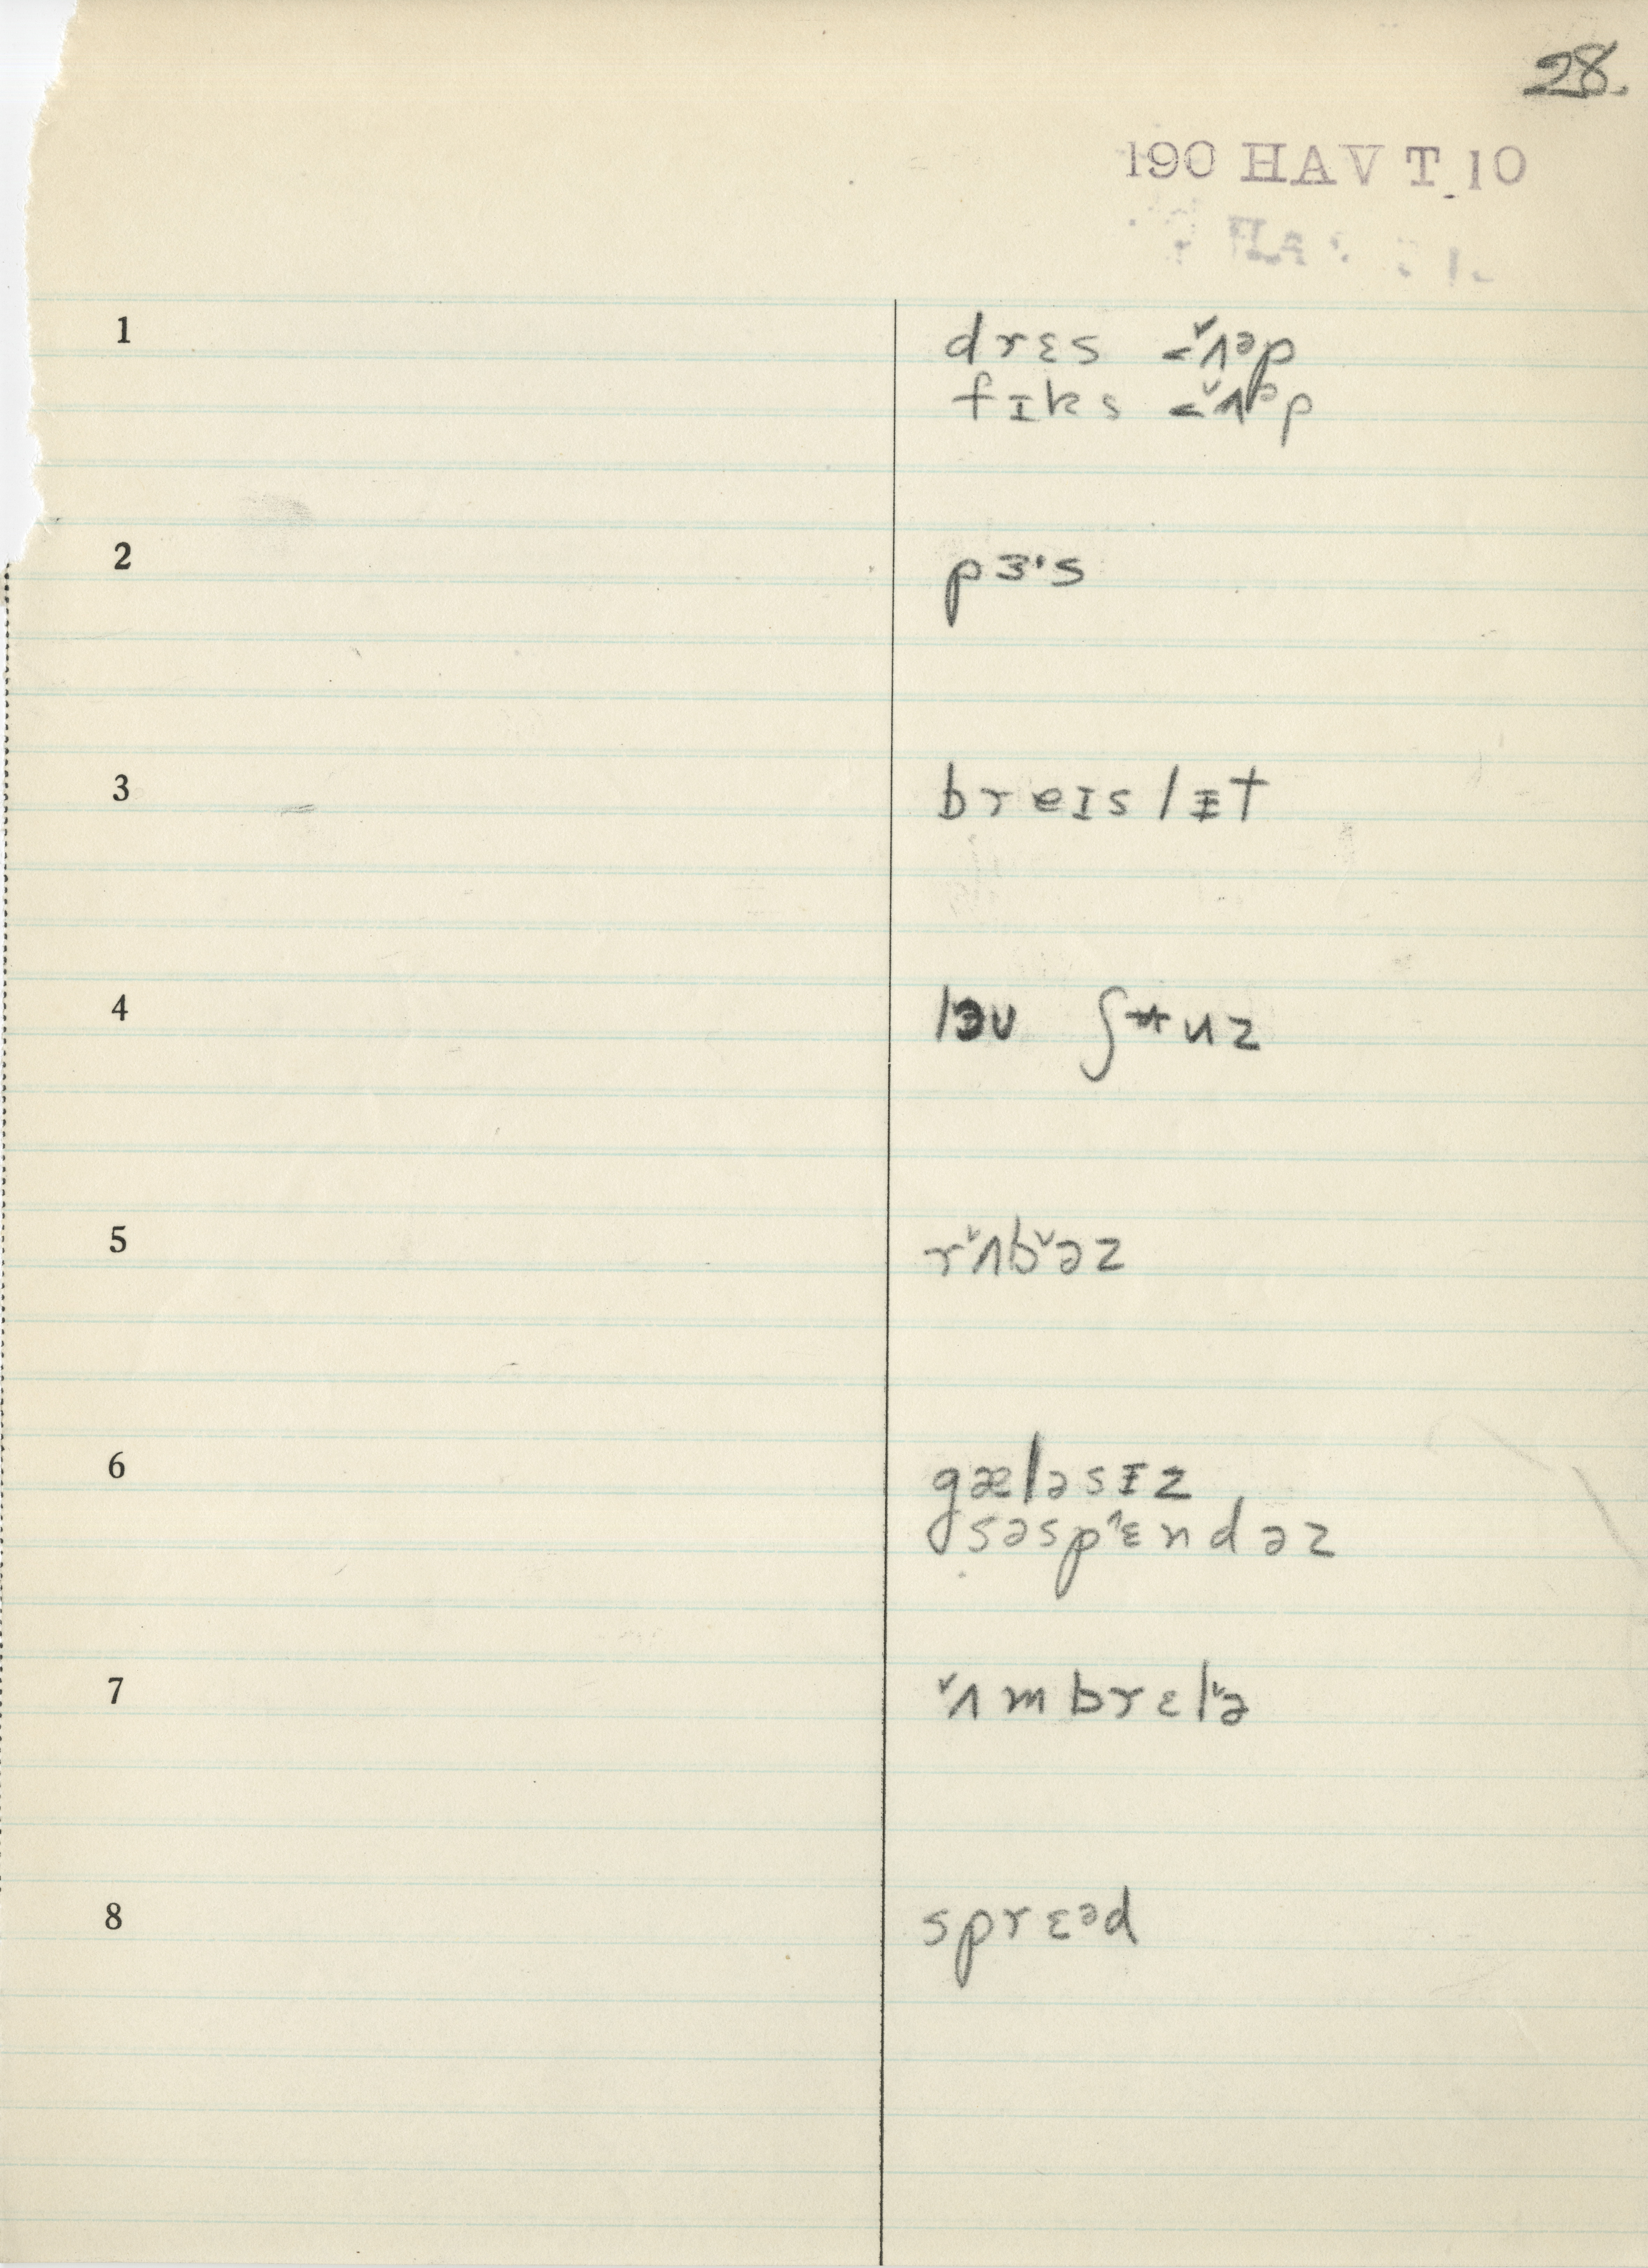 28.
190 HAV T 10
1 drɛs <ʌ̌ᵊp
fɪks <ʌ̌ᵊp
2 pɜ's
3 breɪslɪ̵t
4 ʃʉuz
5 rʌ̌bˇəz
6 gæləsɪ̵z
səspˆɛndəz
7 ˇʌmbrɛlˇə
8 sprɛᵊd